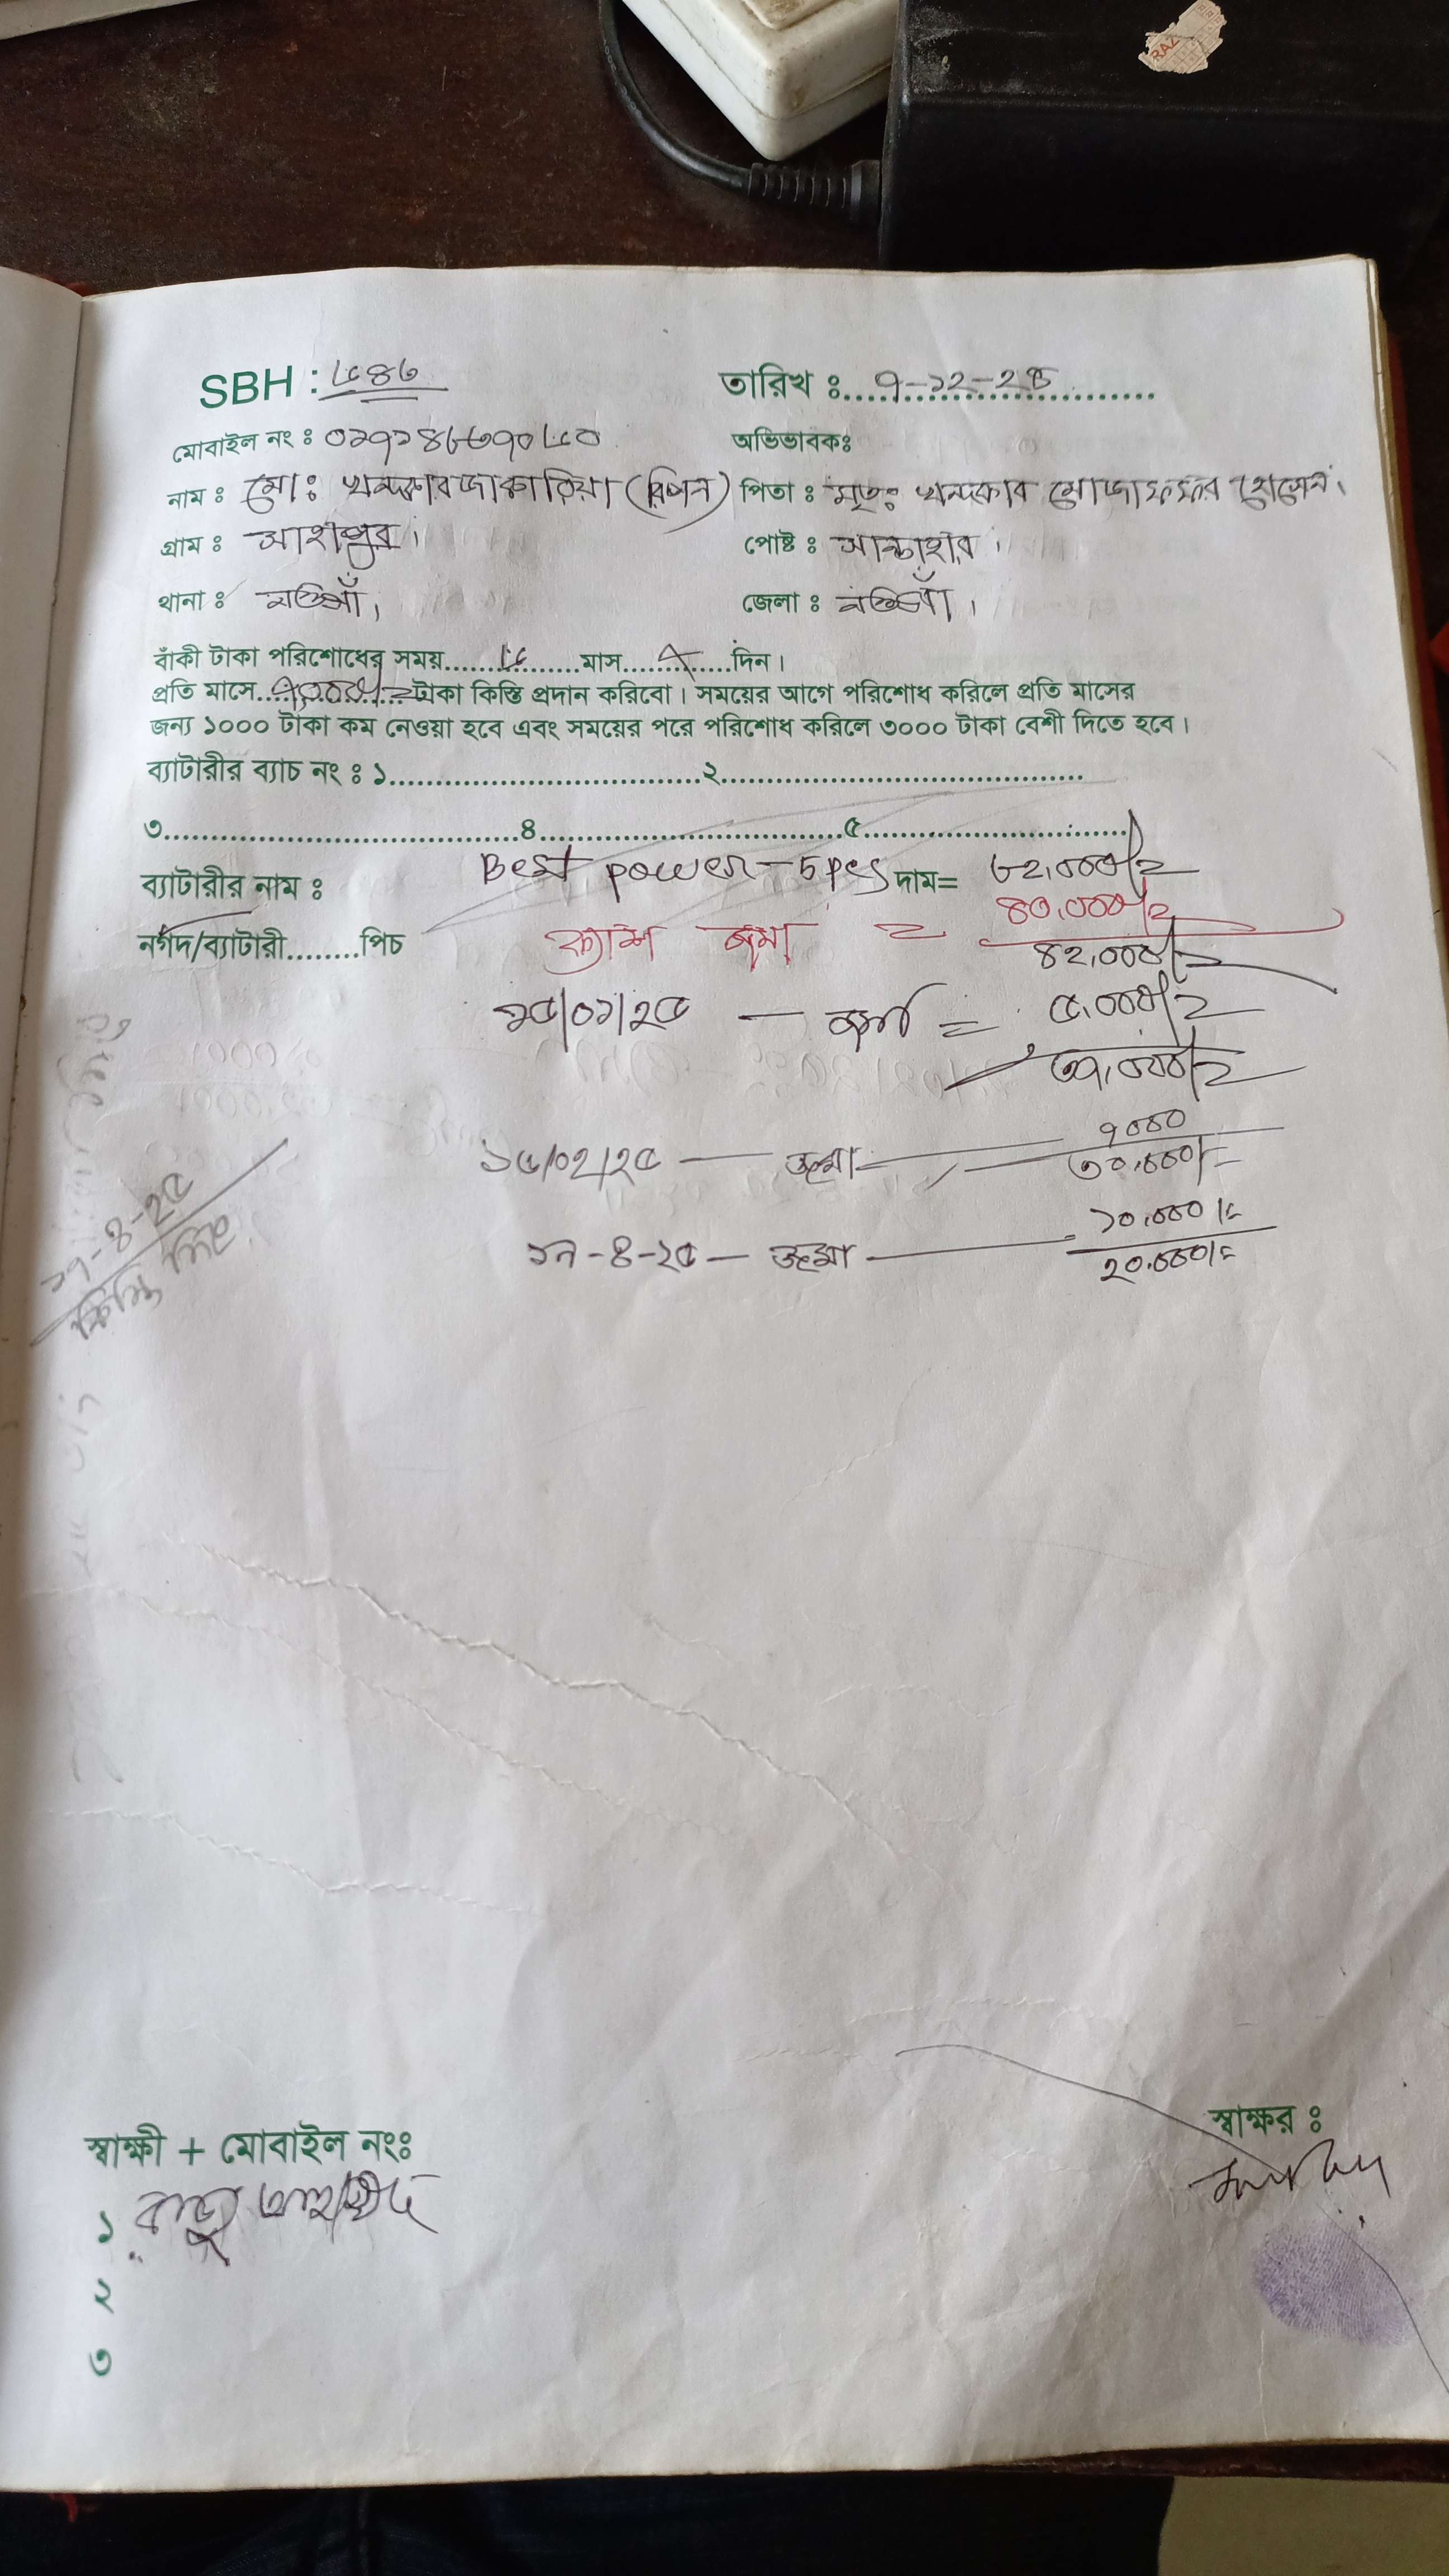 RAZ
SBH : ৫৪৬
তারিখ ঃ ৭-১২-২৪
মোবাইল নং ঃ
অভিভাবকঃ
নাম ঃ মোঃ খন্দকার জাকারিয়া (রিপন)
পিতা ঃ মৃতঃ খন্দকার মোজাফফর হোসেন।
গ্রাম ঃ সাহাপুর।
পোষ্ট ঃ সান্তাহার।
থানা ঃ নওগাঁ।
জেলা ঃ নওগাঁ।
বাঁকী টাকা পরিশোধের সময়........৫........মাস..........দিন।
প্রতি মাসে..৭,০০০/=টাকা কিস্তি প্রদান করিবো। সময়ের আগে পরিশোধ করিলে প্রতি মাসের
জন্য ১০০০ টাকা কম নেওয়া হবে এবং সময়ের পরে পরিশোধ করিলে ৩০০০ টাকা বেশী দিতে হবে।
ব্যাটারীর ব্যাচ নং ঃ ১........................................২........................................
৩........................................৪........................................৫........................................
ব্যাটারীর নাম ঃ Best power - 5pcs দাম= ৮২,০০০/=
নগদ/ব্যাটারী........পিচ ক্যাশ জমা = ৪০,০০০/=
৪২,০০০/=
১৫/০১/২৫ — জমা = ৫,০০০/=
৩৭,০০০/=
৭০০০
১৫/০২/২৫ — জমা — ৩০,০০০/=
১০,০০০/=
১৭-৪-২৫ — জমা — ২০,০০০/=
১৭-৪-২৫
স্বাক্ষী + মোবাইল নংঃ
স্বাক্ষর ঃ
১
২
৩